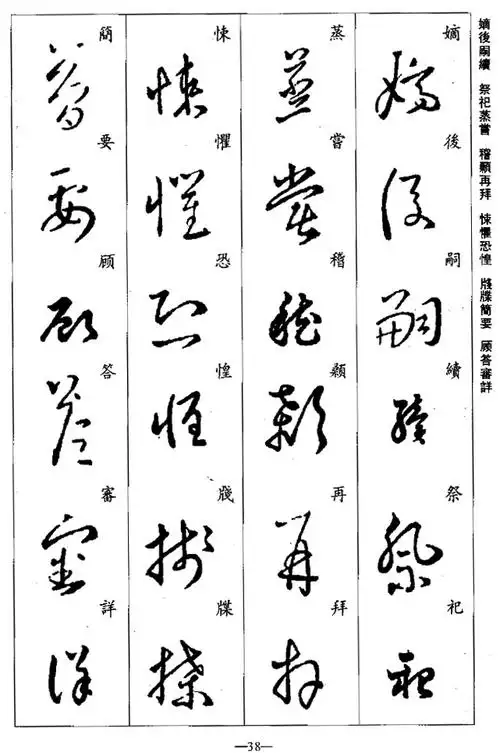 嫡後嗣續 祭祀蒸嘗 稽顙再拜 悚懼恐惶 牋牒簡要 顧答審詳
嫡後嗣續祭祀
蒸嘗稽顙再拜
悚懼恐惶牋牒
簡要顧答審詳
—38—